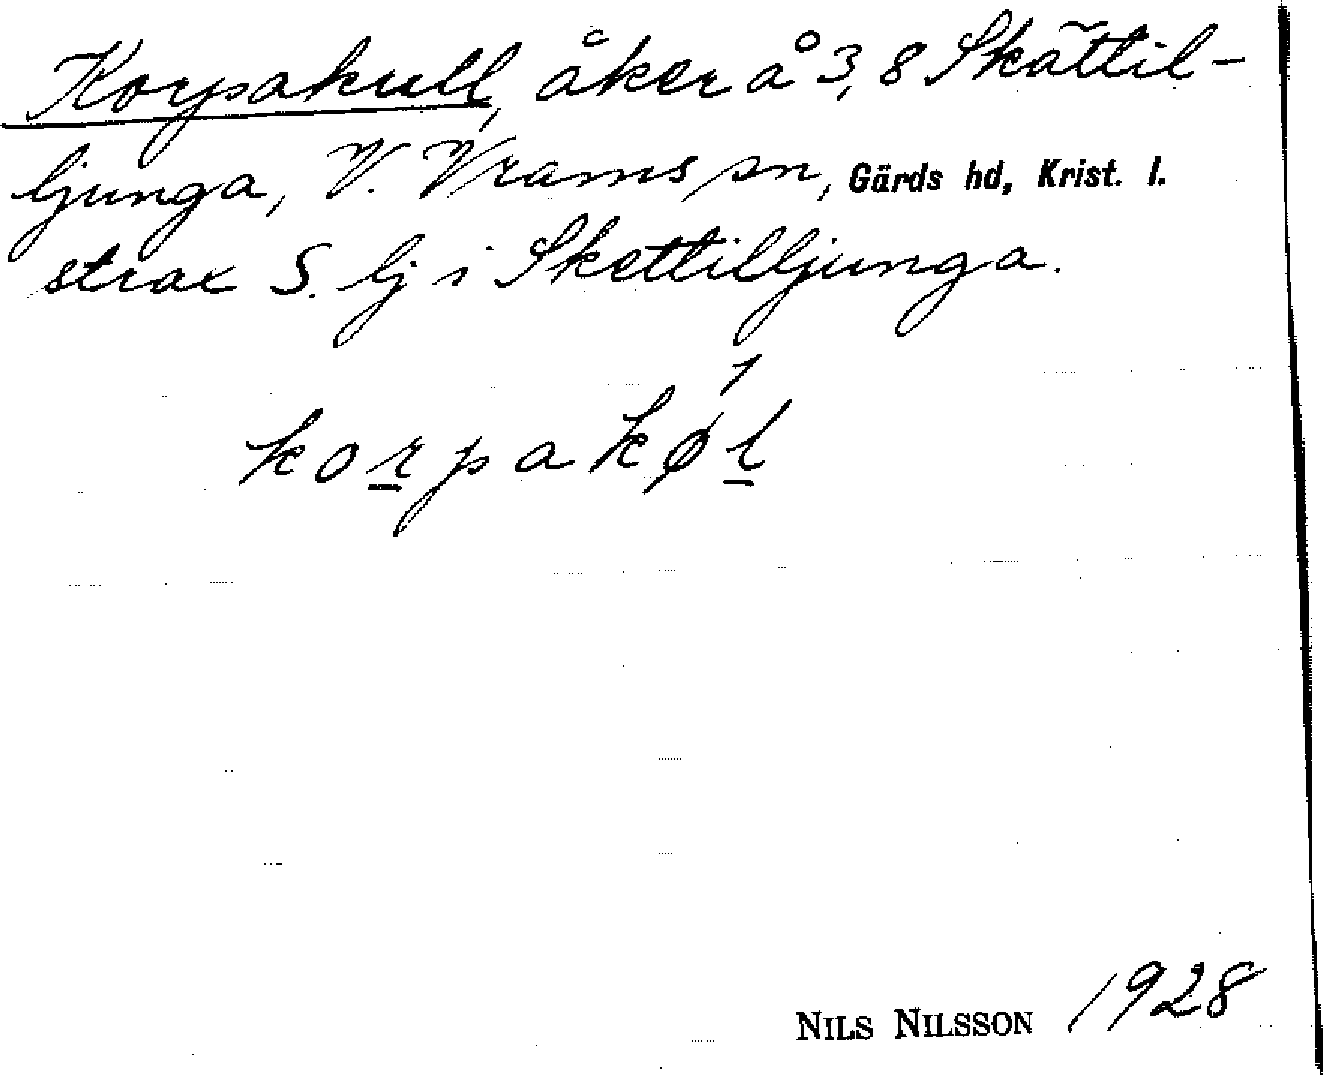 Korpakull, åker å 3,8 Skättil-
ljunga, V. Vrams sn, Gärds hd, Krist. l.
strax S. lj i Skettilljunga.
korpakøl
NILS NILSSON 1928